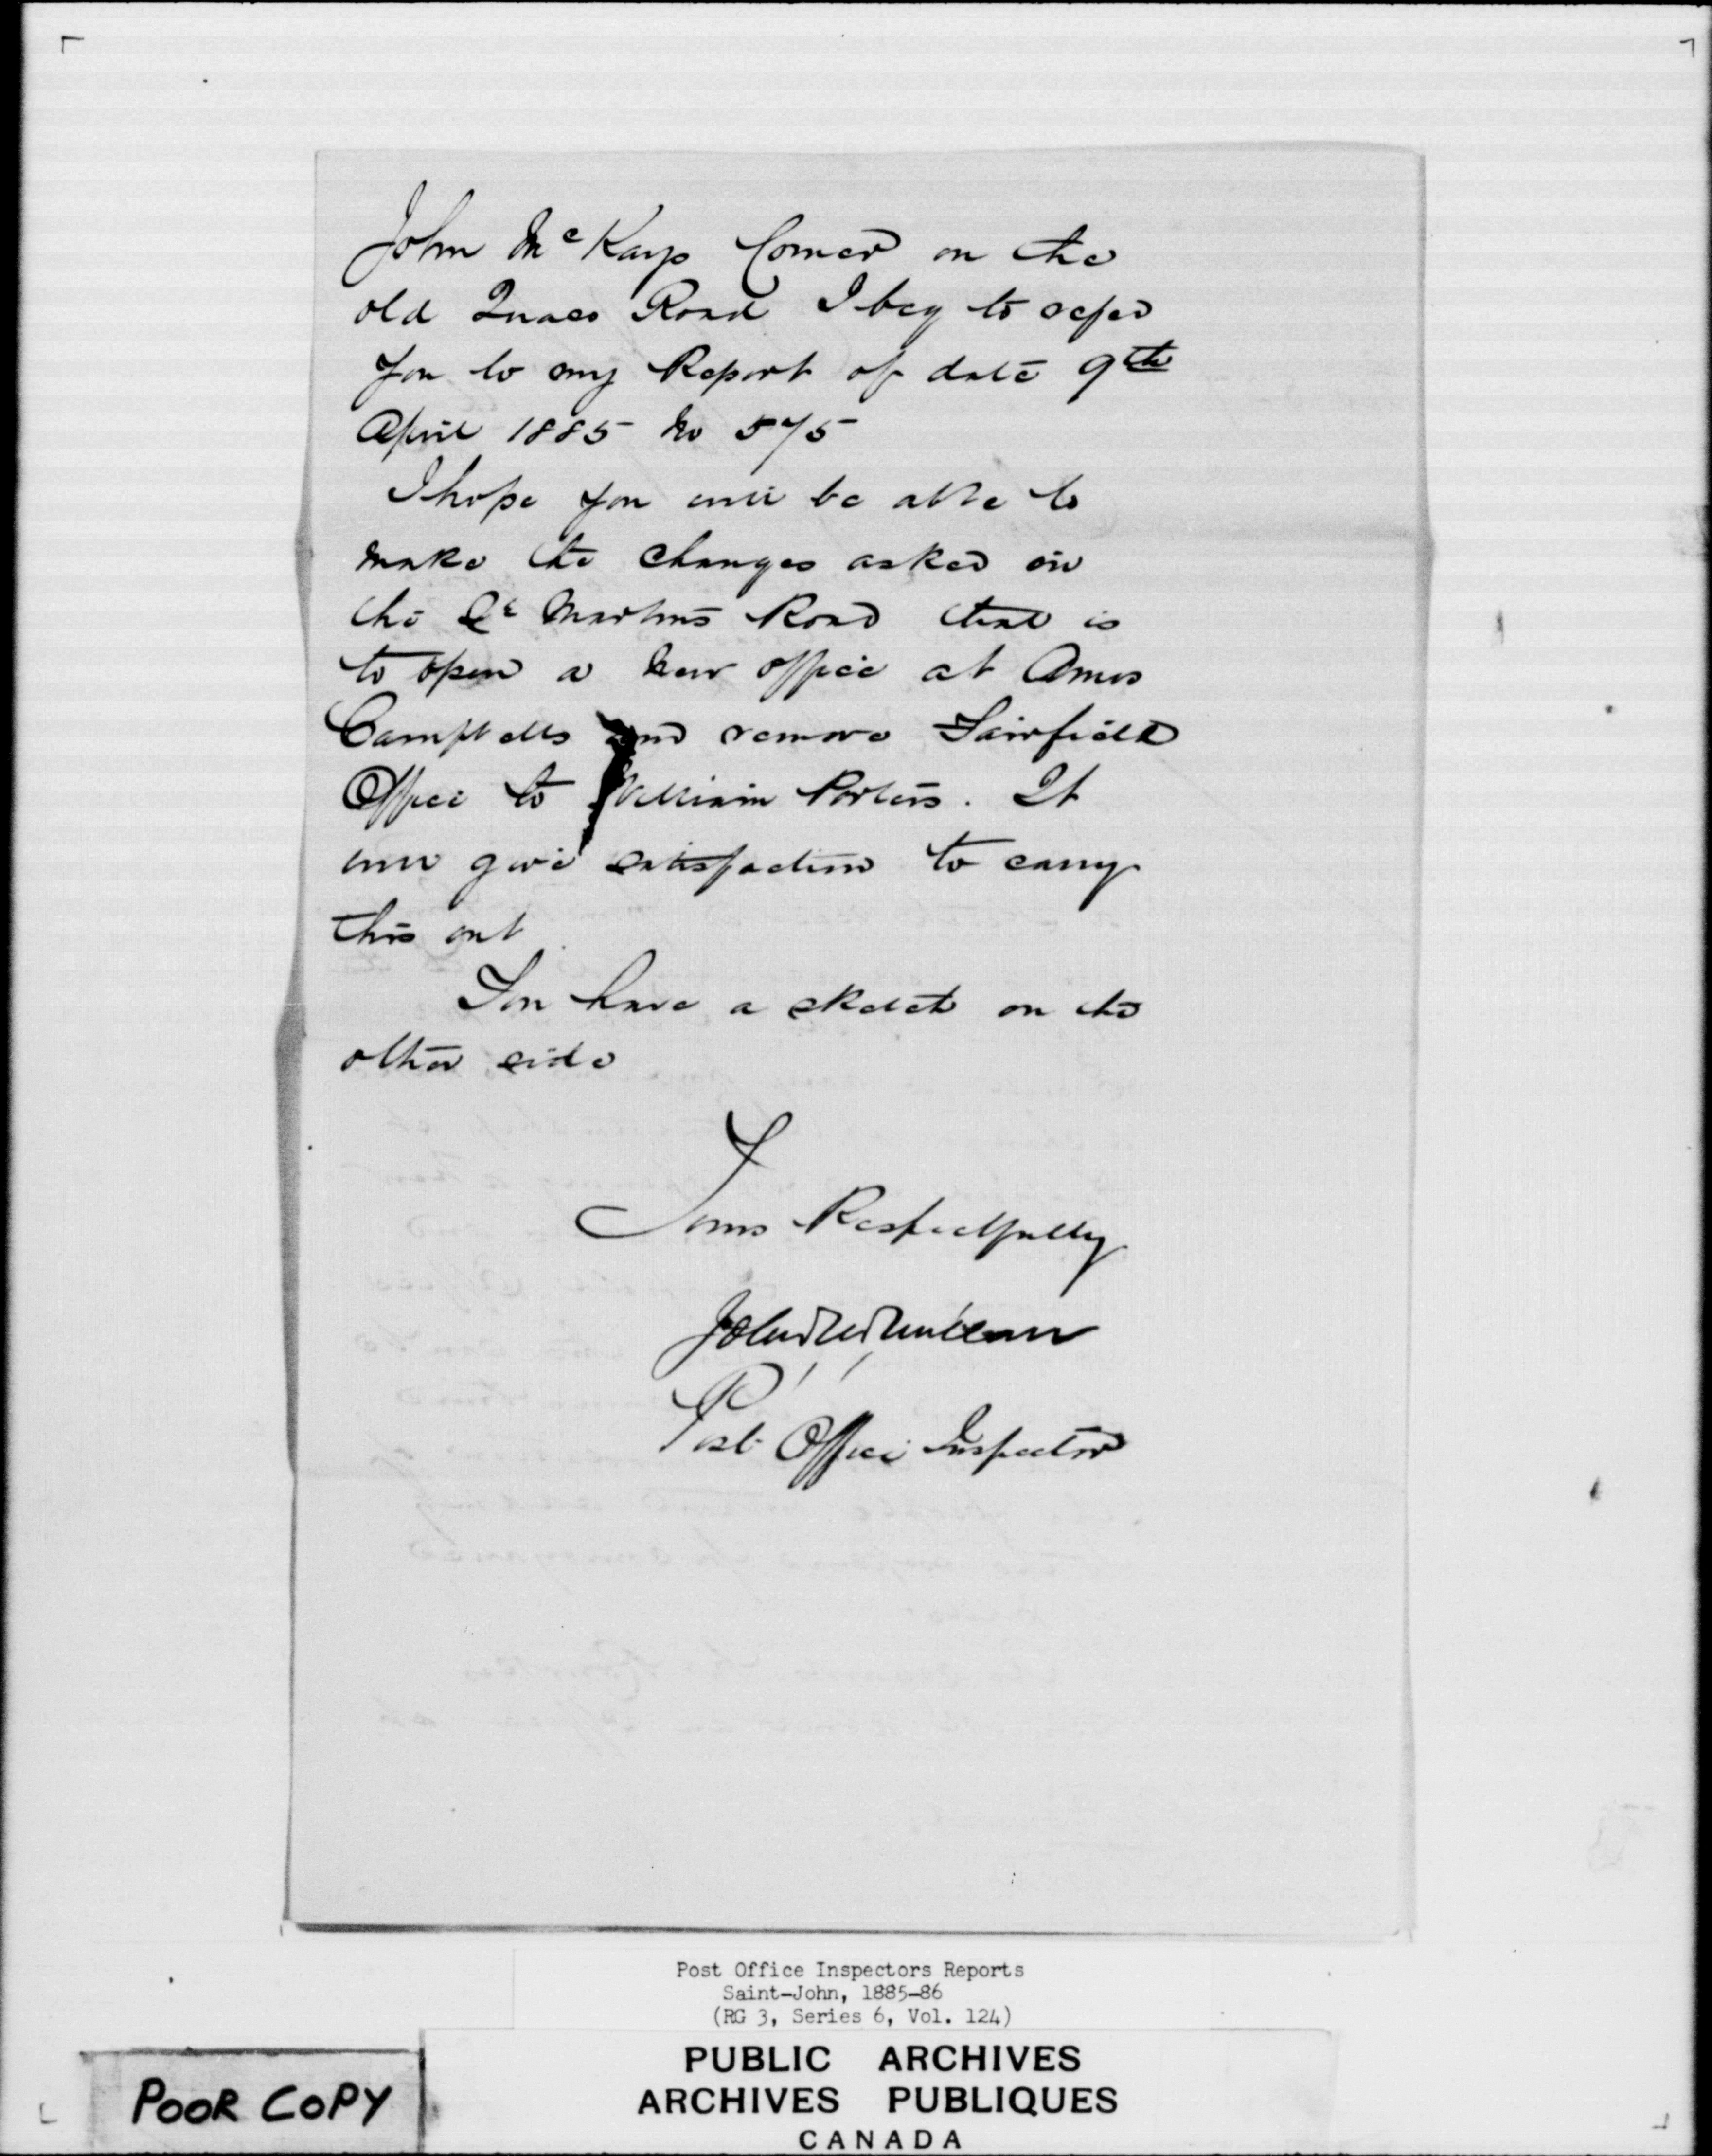 John McKays Corner on the
old Quaco Road I beg to refer
you to my Report of date 9th
April 1885 No 575
I hope you will be able to
make the changes asked on
the St Martins Road that is
to open a new office at Amos
Campbells and remove Fairfield
Office to William Porters. It
will give satisfaction to carry
this out
You have a sketch on the
other side
Yours Respectfully
John
Post Office Inspector
Post Office Inspectors Reports
Saint-John, 1885-86
(RG 3, Series 6, Vol. 124)
PUBLIC ARCHIVES
ARCHIVES PUBLIQUES
CANADA
POOR COPY